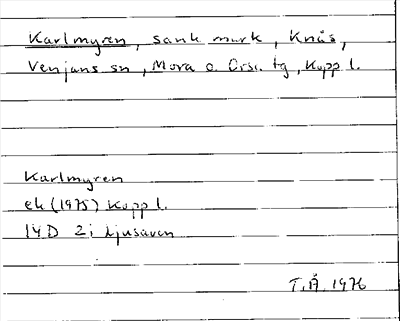 Karlmyren, sank mark, Knås,
Venjans sn, Mora o. Orsa tg, Kopp l.
Karlmyren
ek (1975) Kopp l.
14D 2i Ljusaven
T.Å. 1976